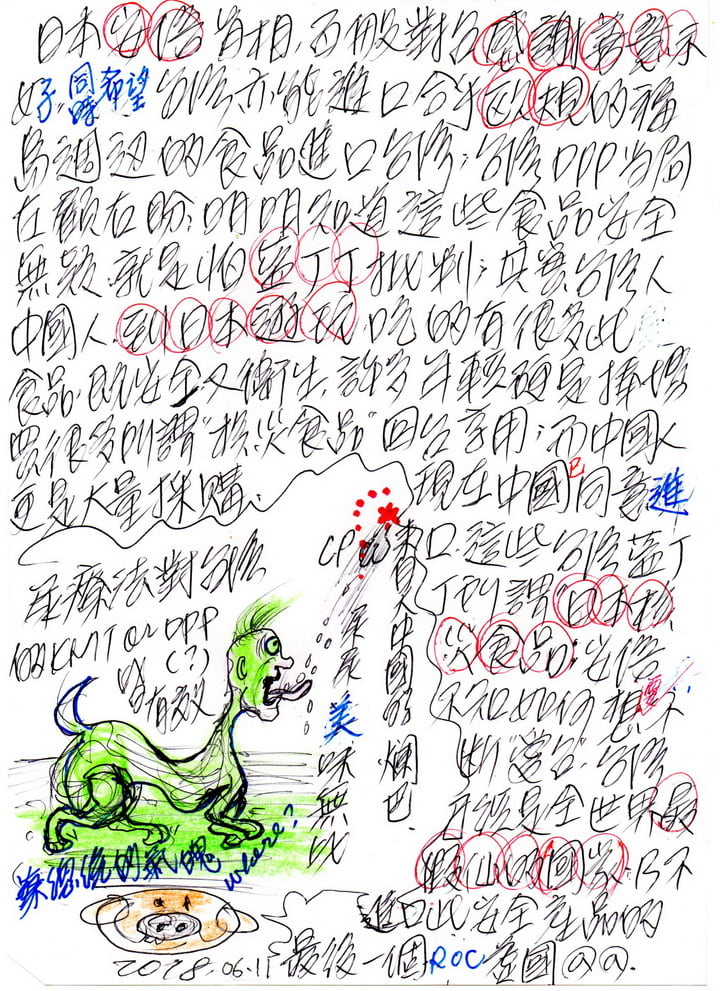 日本安倍首相，百般對台感謝善意示
好子同時希望台灣亦能進口合乎歐規的福
島週邊的食品進口台灣；台灣DPP當局
左顧右盼，明明知道這些食品安全
無疑，就是怕藍丁丁批判；其實台灣人
中國人，到日本遊玩，吃的有很多此
食品，既安全又衛生，許多年輕
買很多所謂"核災食品"回台享用；而中國人
更是大量採購。現在中國已同意進
口，這些台灣藍丁
丁所謂"日本核
災食品"；安倍
不知如何想要不
斷"愛台"台灣
可說是全世界最
假仙的國家，乃不
進口此安全產品的
尿療法對台灣
的KMT or DPP
(?)
皆有效
CP
美
味無比
蔡總統的氣魄
where?
2018.06.11 最後一個ROC 藍國@@.